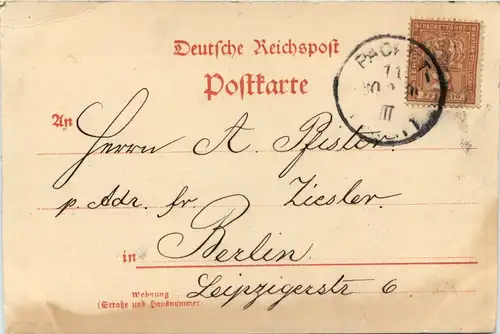 Deutsche Reichspost
Postkarte
PACKET
11
III
An Herrn A. Pfister
p. Adr. fr. Ziesler
in Berlin
Wohnung
(Straße und Hausnummer)
Leipzigerstr 6